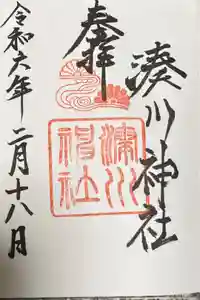 奉拝
湊川神社
湊川神社
令和六年二月十八日